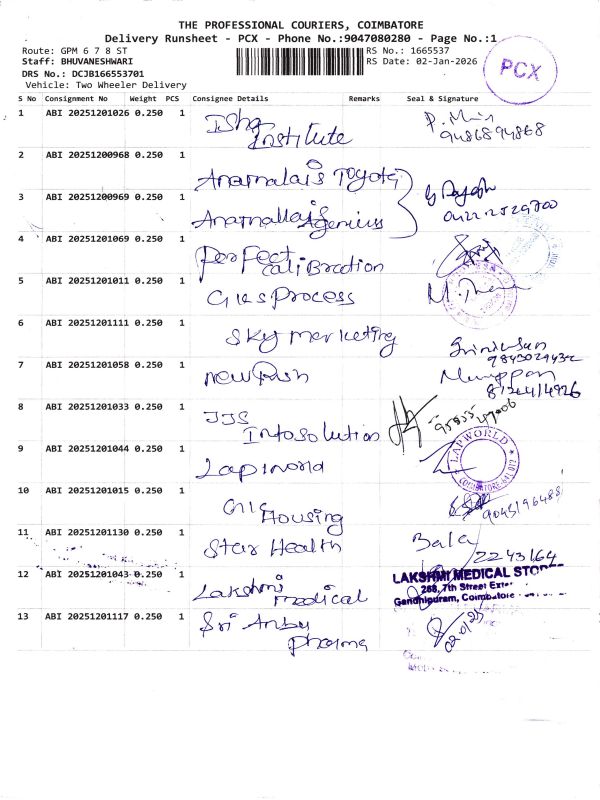 THE PROFESSIONAL COURIERS, COIMBATORE
Delivery Runsheet - PCX - Phone No.:9047080280 - Page No.:1
Route: GPM 6 7 8 ST
RS No.: 1665537
Staff: BHUVANESHWARI
RS Date: 02-Jan-2026
DRS No.: DCJB166553701
Vehicle: Two Wheeler Delivery
PCX
S No Consignment No Weight PCS Consignee Details Remarks Seal & Signature
1 ABI 20251201026 0.250 1 Isha Institute
9486894868
2 ABI 20251200968 0.250 1 Anamalais Toyota
3 ABI 20251200969 0.250 1 Anamallais Agencies
4 ABI 20251201069 0.250 1 Perfect Calibration
5 ABI 20251201011 0.250 1 Process
6 ABI 20251201111 0.250 1 Sky marketing
Srinivasan
7 ABI 20251201058 0.250 1 New
8 ABI 20251201033 0.250 1 JJS Infosolution
9 ABI 20251201044 0.250 1 Lapworld
LAPWORLD
COIMBATORE-641 012
10 ABI 20251201015 0.250 1 Housing
11 ABI 20251201130 0.250 1 Star Health
Bala
2243164
12 ABI 20251201043 0.250 1 Lakshmi medical
LAKSHMI MEDICAL
268, 7th Street
Gandhipuram, Coimbatore
13 ABI 20251201117 0.250 1 Sri Anbu pharma